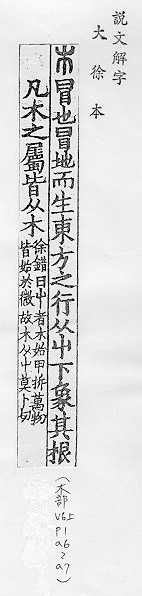 説文解字
大徐本
木冒也冒地而生東方之行从屮下象其根
凡木之屬皆从木徐鍇曰屮者木始甲拆萬物
皆始於微故木从屮莫卜切
(木部
V6上
P1
a6
2
a7)